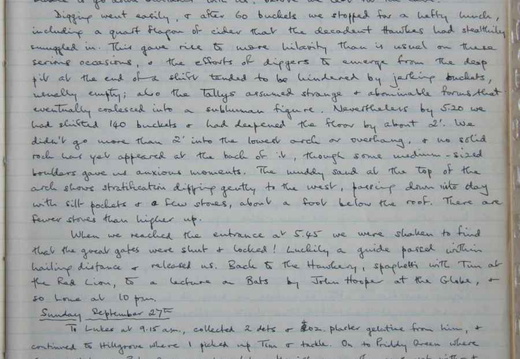 Digging went easily, & after 60 buckets we stopped for a hefty lunch,
including a quart flagon of cider that the decadent Hawkes had stealthily
smuggled in. This gave rise to more hilarity than is usual on these
serious occasions, & the efforts of diggers to emerge from the deep
pit at the end of a shift tended to be hindered by jerking buckets,
usually empty; also the Tallys assumed strange & abominable forms that
eventually coalesced into a subhuman figure. Nevertheless by 5.20 we
had shifted 140 buckets & had deepened the floor by about 2'. We
didn't go more than 2' into the lowest arch or overhang, & no solid
rock has yet appeared at the back of it, though some medium-sized
boulders gave us anxious moments. The muddy sand at the top of the
arch shows stratification dipping gently to the west, passing down into clay
with silt pockets & a few stones, about a foot below the roof. There are
fewer stones than higher up.
When we reached the entrance at 5.45 we were shaken to find
that the great gates were shut & locked! Luckily a guide passed within
hailing distance & released us. Back to the Hawkery, spaghetti with Tim at
the Red Lion, to a lecture on Bats by John Hooper at the Globe, &
so home at 10 pm.
Sunday September 27th
To Lukes at 9.15 am, collected 2 dets & 8oz. plaster gelatine from him, &
continued to Hillgrove where I picked up Tim & tackle. On to Priddy Green where